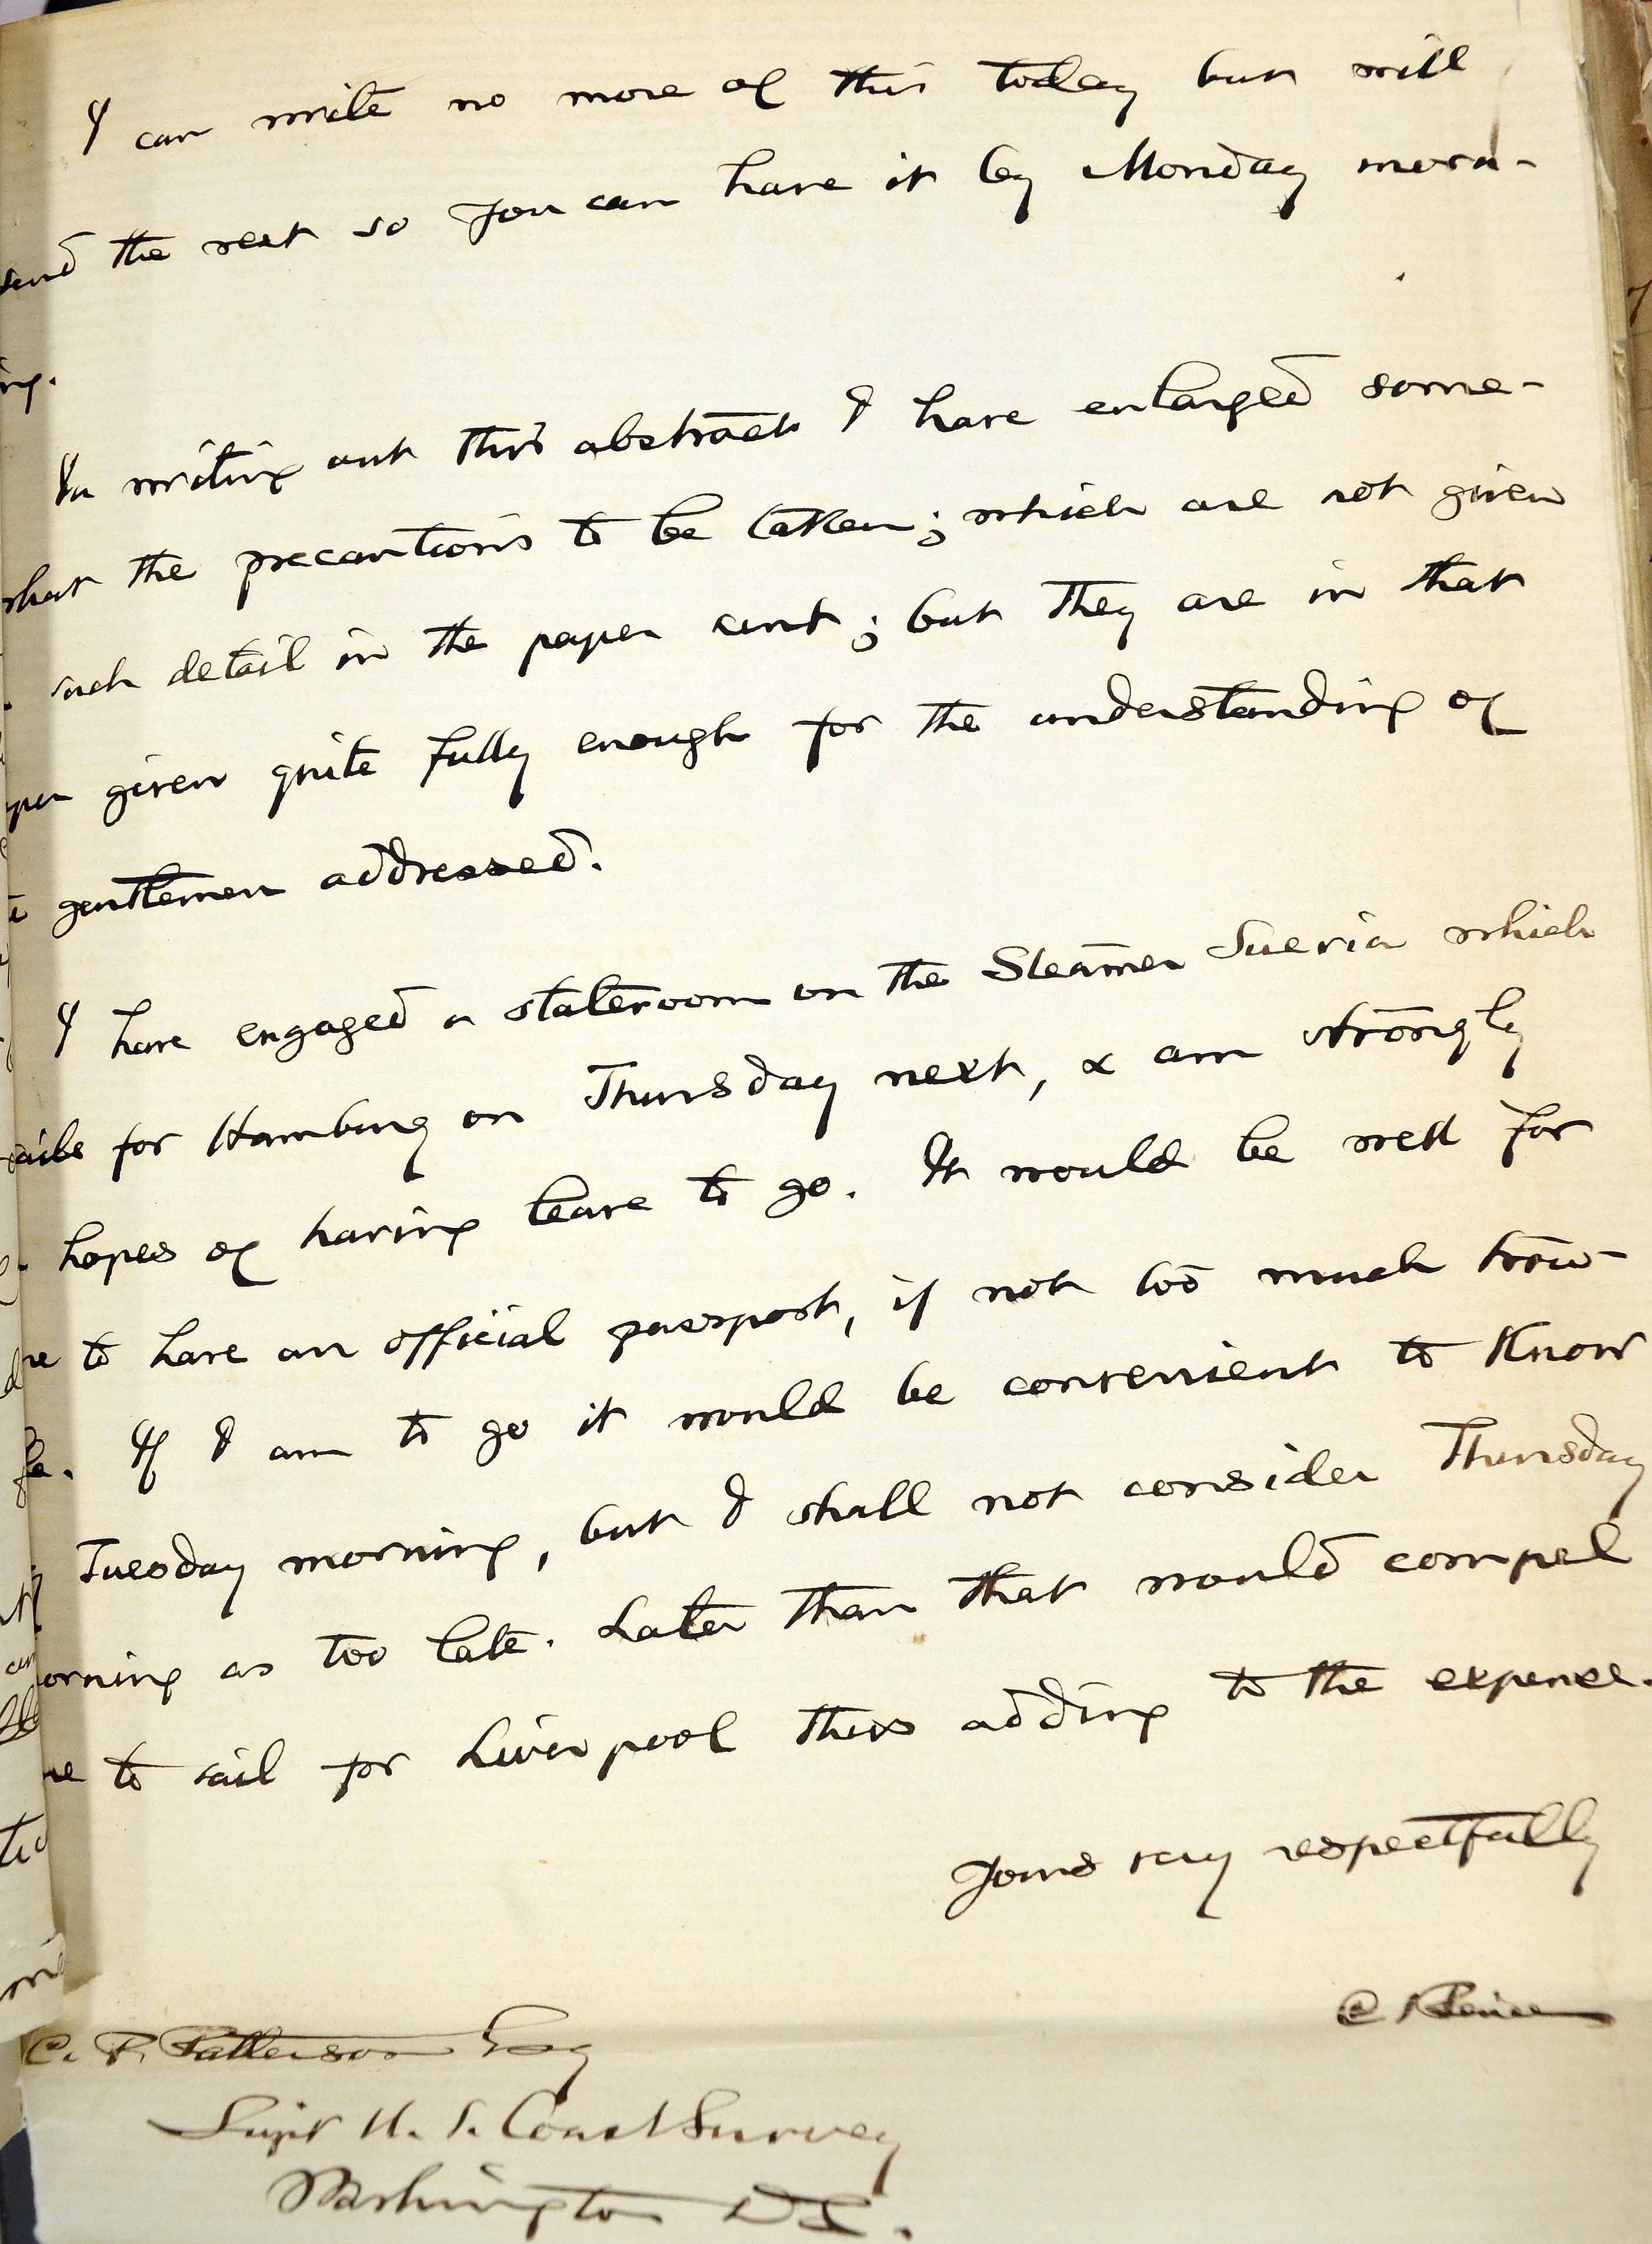 I can write no more of this today but will
send the rest so you can have it by Monday morn-
ing.
In writing out this abstract I have enlarged some-
what the precautions to be taken; which are not given
in such detail in the paper sent; but they are in that
paper given quite fully enough for the understanding of
the gentlemen addressed.
I have engaged a stateroom on the Steamer Suevia which
sails for Hamburg on Thursday next, & am strongly
hopes of having leave to go. It would be well for
me to have an official passport, if not too much trou-
ble. If I am to go it would be convenient to know
Tuesday morning, but I shall not consider Thursday
morning as too late. Later than that would compel
me to sail for Liverpool thus adding to the expense.
Yours very respectfully
C. S. Peirce
C. P. Patterson Esq
Supt U. S. Coast Survey
Washington D.C.